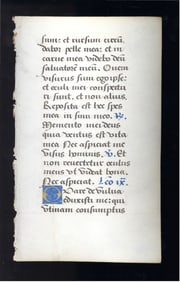 sum: et rursum circum
dabor pelle mea: et in
carne mea videbo deū
salvatorē meū. Quem
visurus sum ego ipse:
et oculi mei conspectu
ri sunt. et non alius.
Reposita est hec spes
mea in sinu meo. ℟.
Memento mei deus
quia ventus est vita
mea Nec aspiciat me
visus hominis. ℣. Et
non revertetur oculus
meus vt videat bona.
Nec aspiciat. Lco ix.
Quare de vulva
eduxisti me: qui
vtinam consumptus